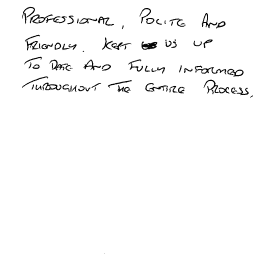 PROFESSIONAL, POLITE AND
FRIENDLY. KEPT US UP
TO DATE AND FULLY INFORMED
THROUGHOUT THE ENTIRE PROCESS.